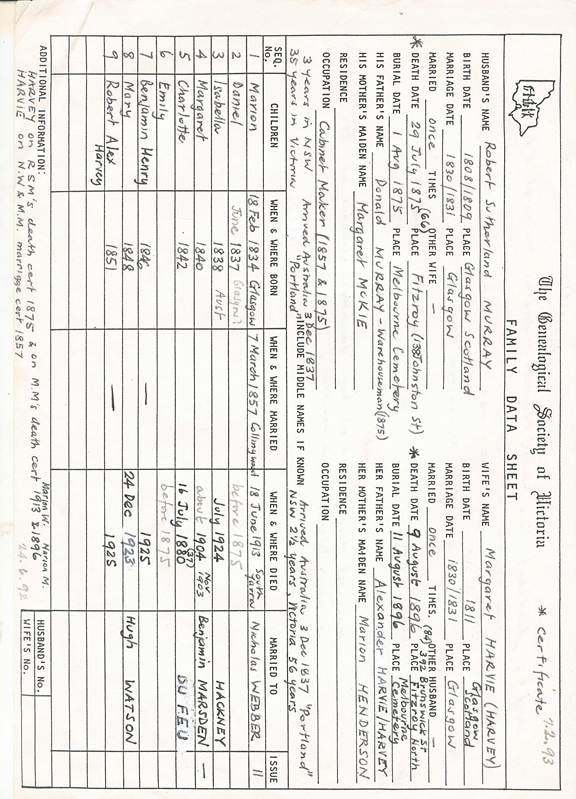 The Genealogical Society of Victoria
* certificate 7.2.93
FAMILY DATA SHEET
HUSBAND'S NAME Robert Sutherland MURRAY
BIRTH DATE 1808/1809 PLACE Glasgow Scotland
MARRIAGE DATE 1830/1831 PLACE Glasgow
MARRIED once TIMES OTHER WIFE —
* DEATH DATE 29 July 1875 (66) PLACE Fitzroy (138 Johnston St)
BURIAL DATE 1 Aug 1875 PLACE Melbourne Cemetery
HIS FATHER'S NAME Donald MURRAY - Warehouseman (1875)
HIS MOTHER'S MAIDEN NAME Margaret McKIE
RESIDENCE
OCCUPATION Cabinet Maker (1857 & 1875)
3 years in NSW Arrived Australia 3 Dec 1837
35 years in Victoria "Portland"
WIFE'S NAME Margaret HARVIE (HARVEY)
BIRTH DATE 1811 PLACE Glasgow Scotland
MARRIAGE DATE 1830/1831 PLACE Glasgow
MARRIED once TIMES. OTHER HUSBAND —
* DEATH DATE 9 August 1896 (84) PLACE 392 Brunswick St Fitzroy North
BURIAL DATE 11 August 1896 PLACE Melbourne Cemetery
HER FATHER'S NAME Alexander HARVIE/HARVEY
HER MOTHER'S MAIDEN NAME Marion HENDERSON
RESIDENCE
OCCUPATION
Arrived Australia 3 Dec 1837 "Portland"
NSW 2½ years, Victoria 56 years
INCLUDE MIDDLE NAMES IF KNOWN
SEQ. No. CHILDREN WHEN & WHERE BORN WHEN & WHERE MARRIED WHEN & WHERE DIED MARRIED TO ISSUE
1 Marion 18 Feb 1834 Glasgow 7 March 1857 Collingwood 18 June 1913 South Yarra Nicholas WEBBER 11
2 Daniel June 1837 Glasgow? before 1875
3 Isabella 1838 Aust July 1924 HACKNEY
4 Margaret 1840 about 1904 Nov 1903 Benjamin MARSDEN —
5 Charlotte 1842 16 July 1880 (37) DU FEU
6 Emily before 1875
7 Benjamin Henry 1846 — 1925
8 Mary 1848 24 Dec 1923 Hugh WATSON
9 Robert Alex Harvey 1851 — 1925
ADDITIONAL INFORMATION:
HARVEY on RSM's death cert 1875 & on M.M's death cert 1913 & 1896
Marion W. Marion M.
HARVIE on N.W & M.M. marriage cert 1857
24.6.92
HUSBAND'S No.
WIFE'S No.